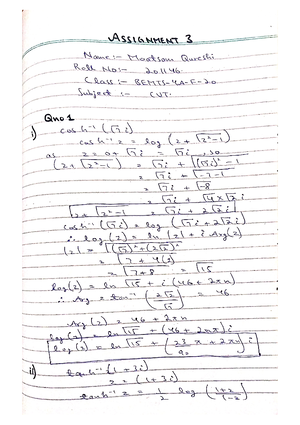 ASSIGNMENT 3
Name:- Mootsam Qureshi
Roll No:- 201146
Class:- BEMTS-4A-F-20
Subject:- CVT.
Qno 1
i) cosh⁻¹(√7i)
cosh⁻¹z = log(z + √z²-1)
as z = 0 + √7i = √7i, so
(z + √z²-1) = √7i + √(√7i)²-1
= √7i + √-7-1
= √7i + √-8
= √7i + √4×2 i
z + √z²-1 = √7i + 2√2i
cosh⁻¹(√7i) = log(√7i + 2√2i)
∴ log(z) = ln|z| + i Arg(z)
|z| = √(√7)²+(2√2)²
= √7+4(2)
= √7+8 = √15
log(z) = ln√15 + i(46+2πn)
∴ Arg = tan⁻¹(2√2/√7) = 46
Arg(z) = 46 + 2πn
log(z) = ln√15 + (46+2nπ)i
log(z) = ln√15 + (23/90 π + 2πn)i
ii) tanh⁻¹(1+3i)
z = (1+3i)
tanh⁻¹z = 1/2 log(1+z/1-z)